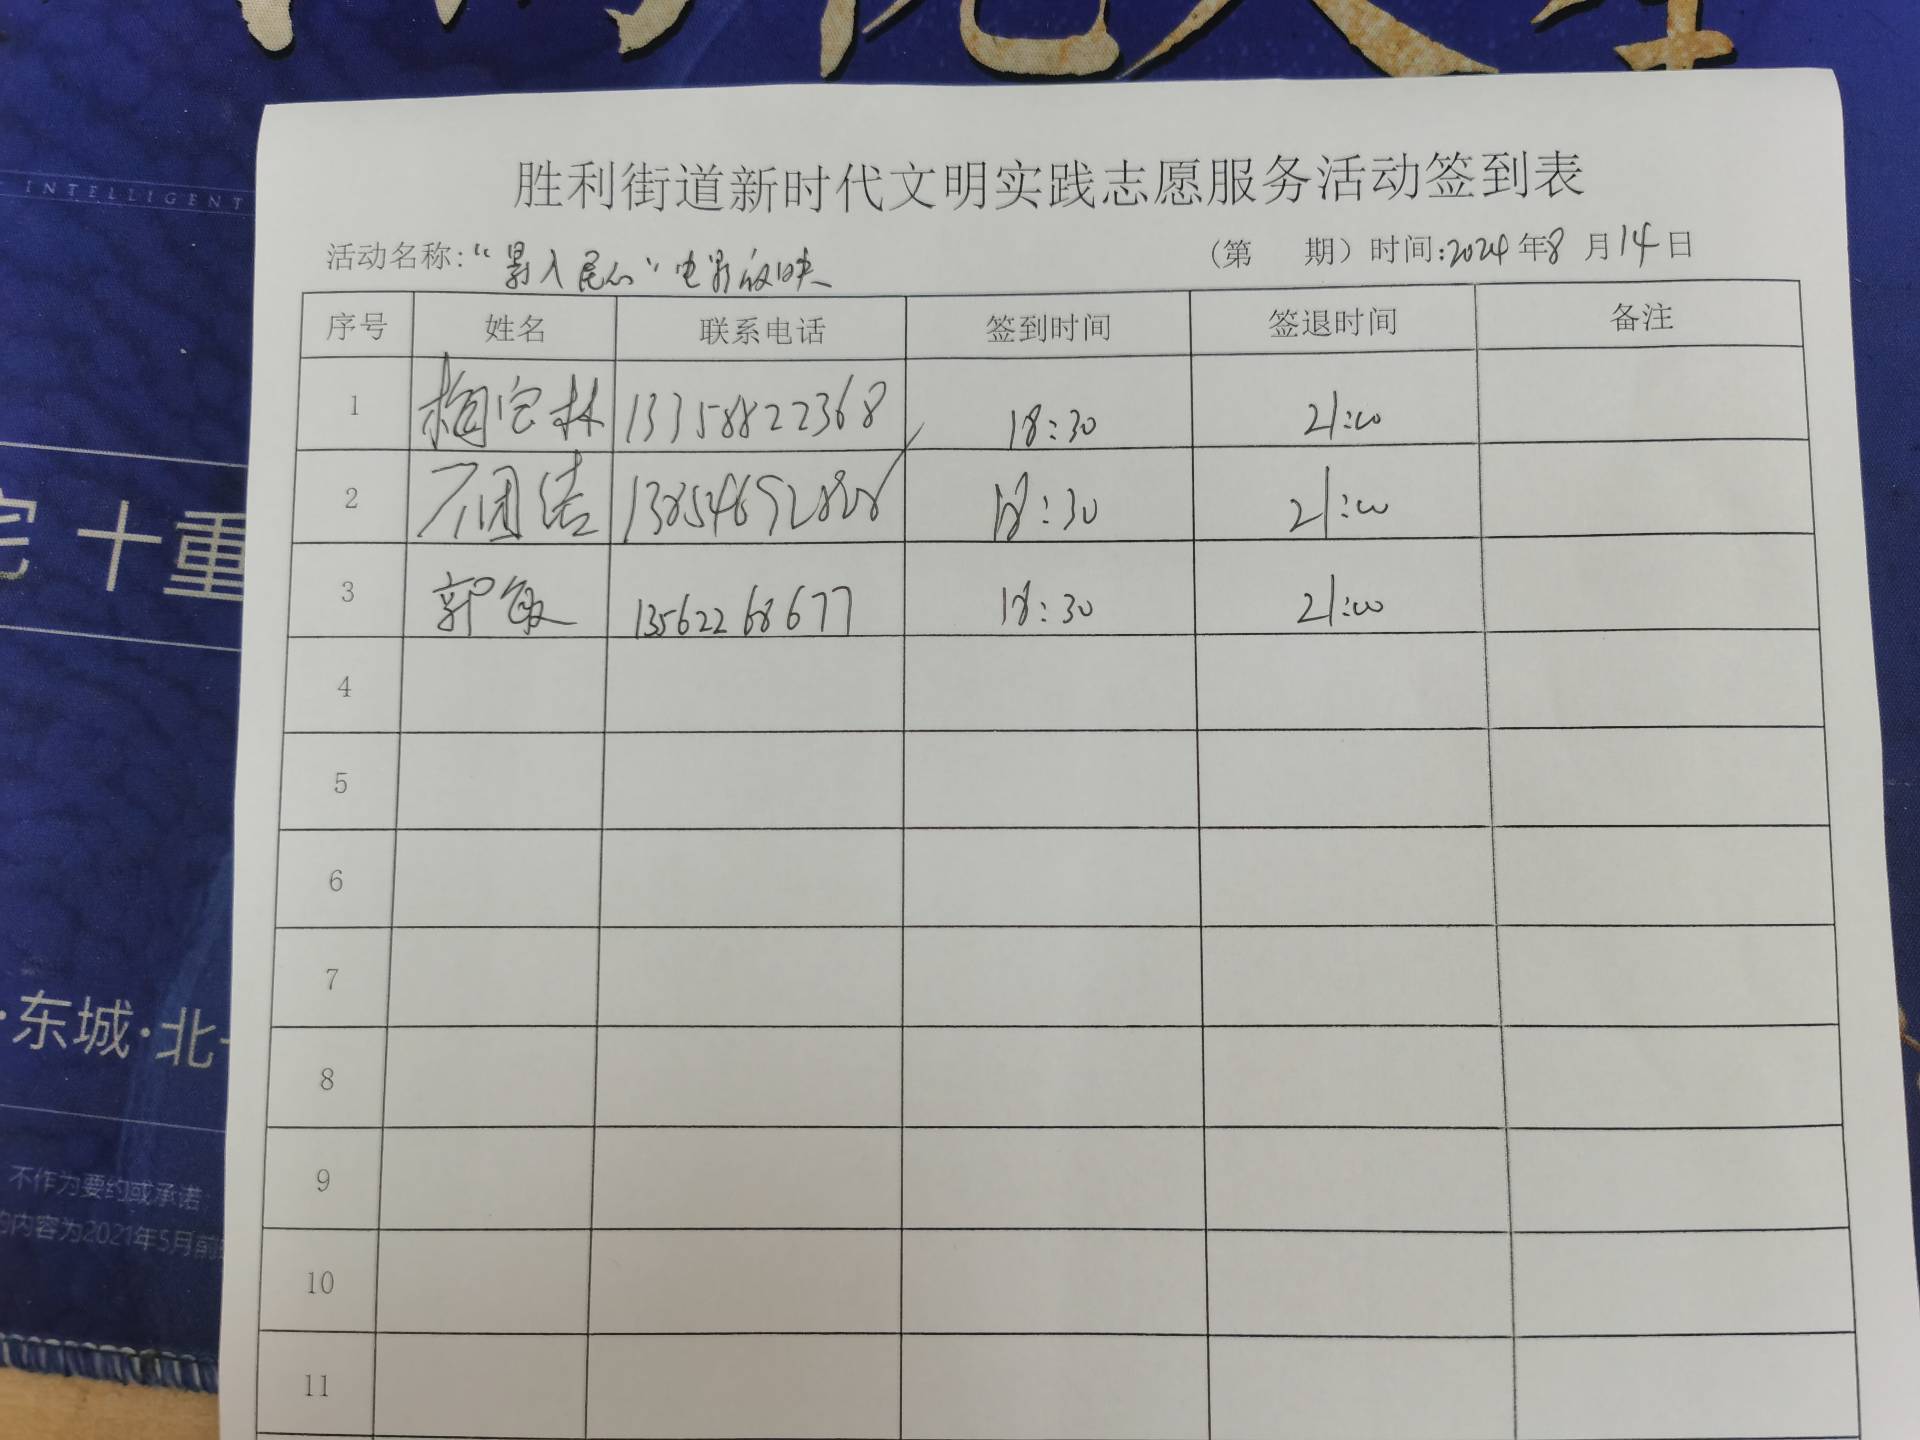 INTELLIGENT
胜利街道新时代文明实践志愿服务活动签到表
活动名称:“影入民心”电影放映 (第 期) 时间:2024年8月14日
序号 姓名 联系电话 签到时间 签退时间 备注
1 林 13358822368 18:30 21:00
2 团结 13854692828 18:30 21:00
3 郭敏 13562268677 18:30 21:00
4
5
6
7
8
9
10
11
宅 十重
·东城·北
不作为要约或承诺;
的内容为2021年5月前